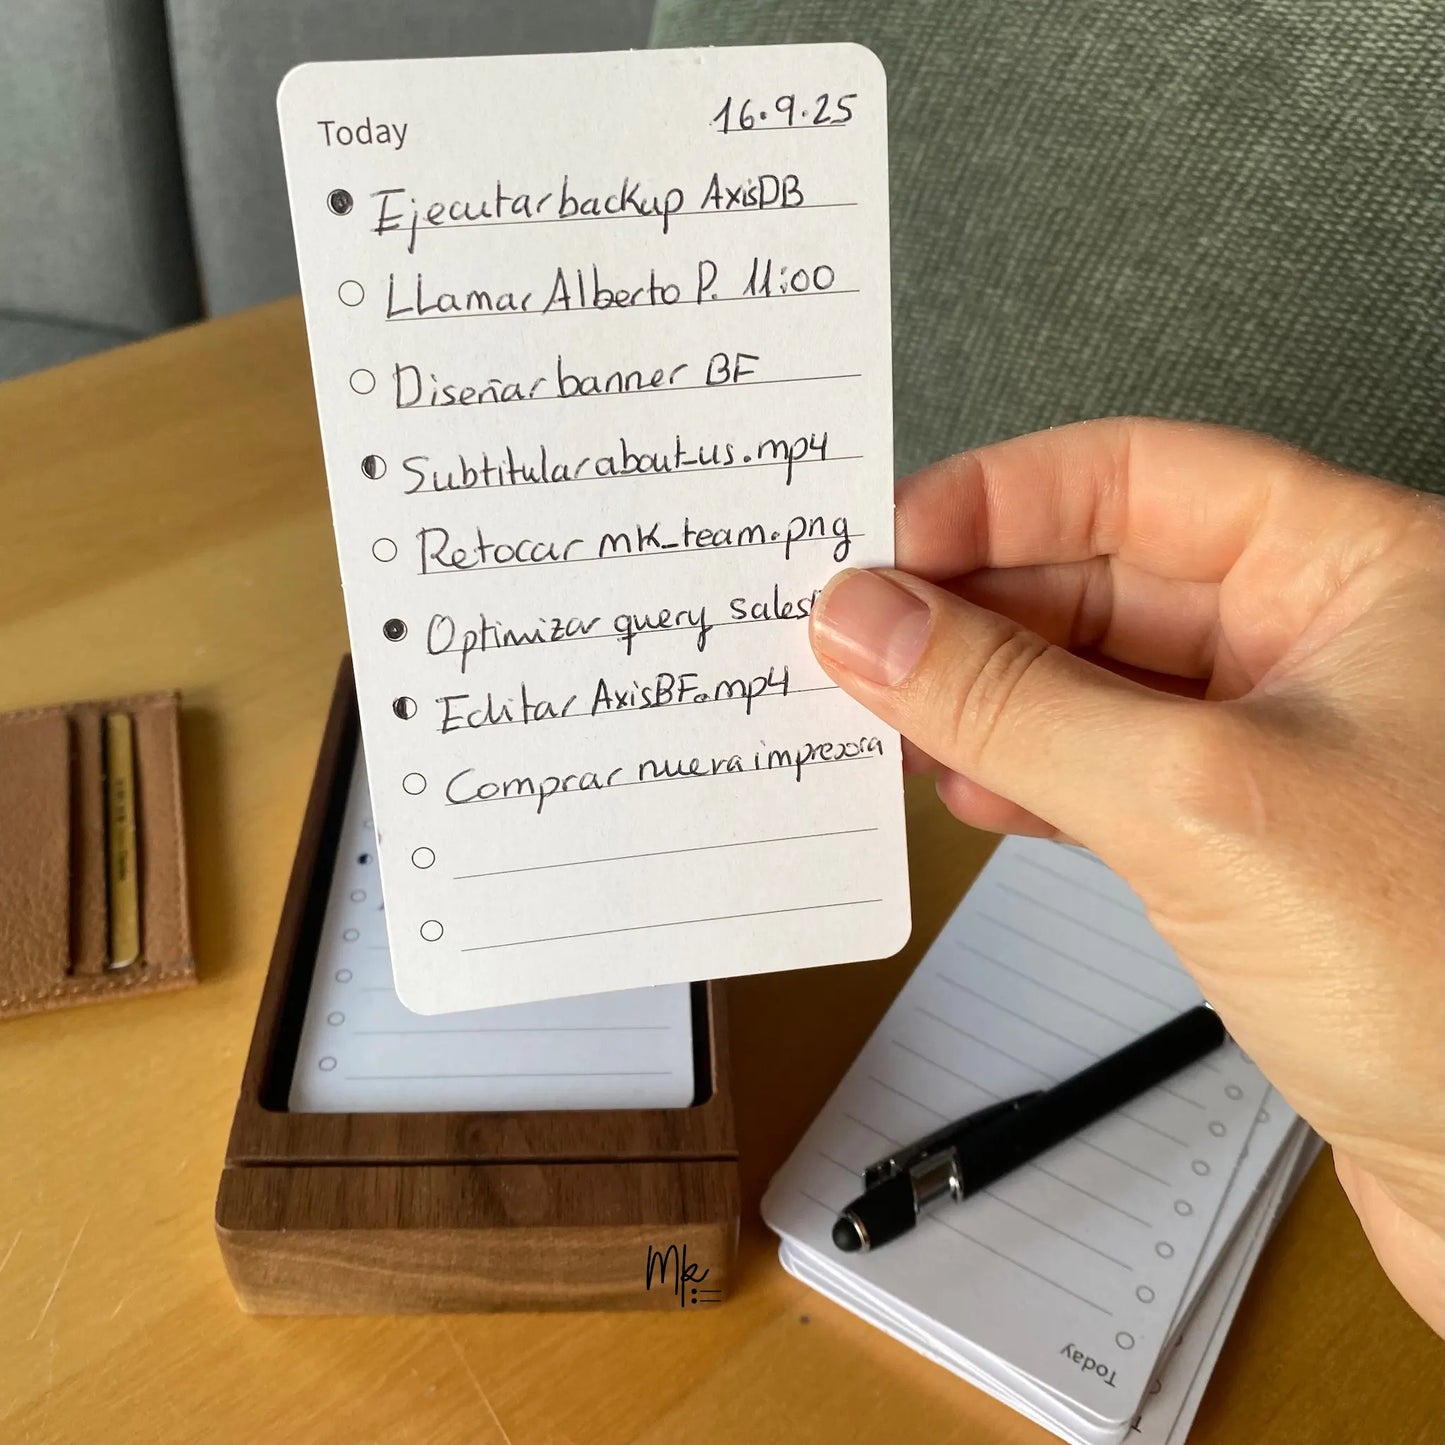 Today
16.9.25
Ejecutar backup AxisDB
LLamar Alberto P. 11:00
Diseñar banner BF
Subtitular about_us.mp4
Retocar mk_team.png
Optimizar query sales
Editar AxisBF.mp4
Comprar nueva impresora
Mk
Today